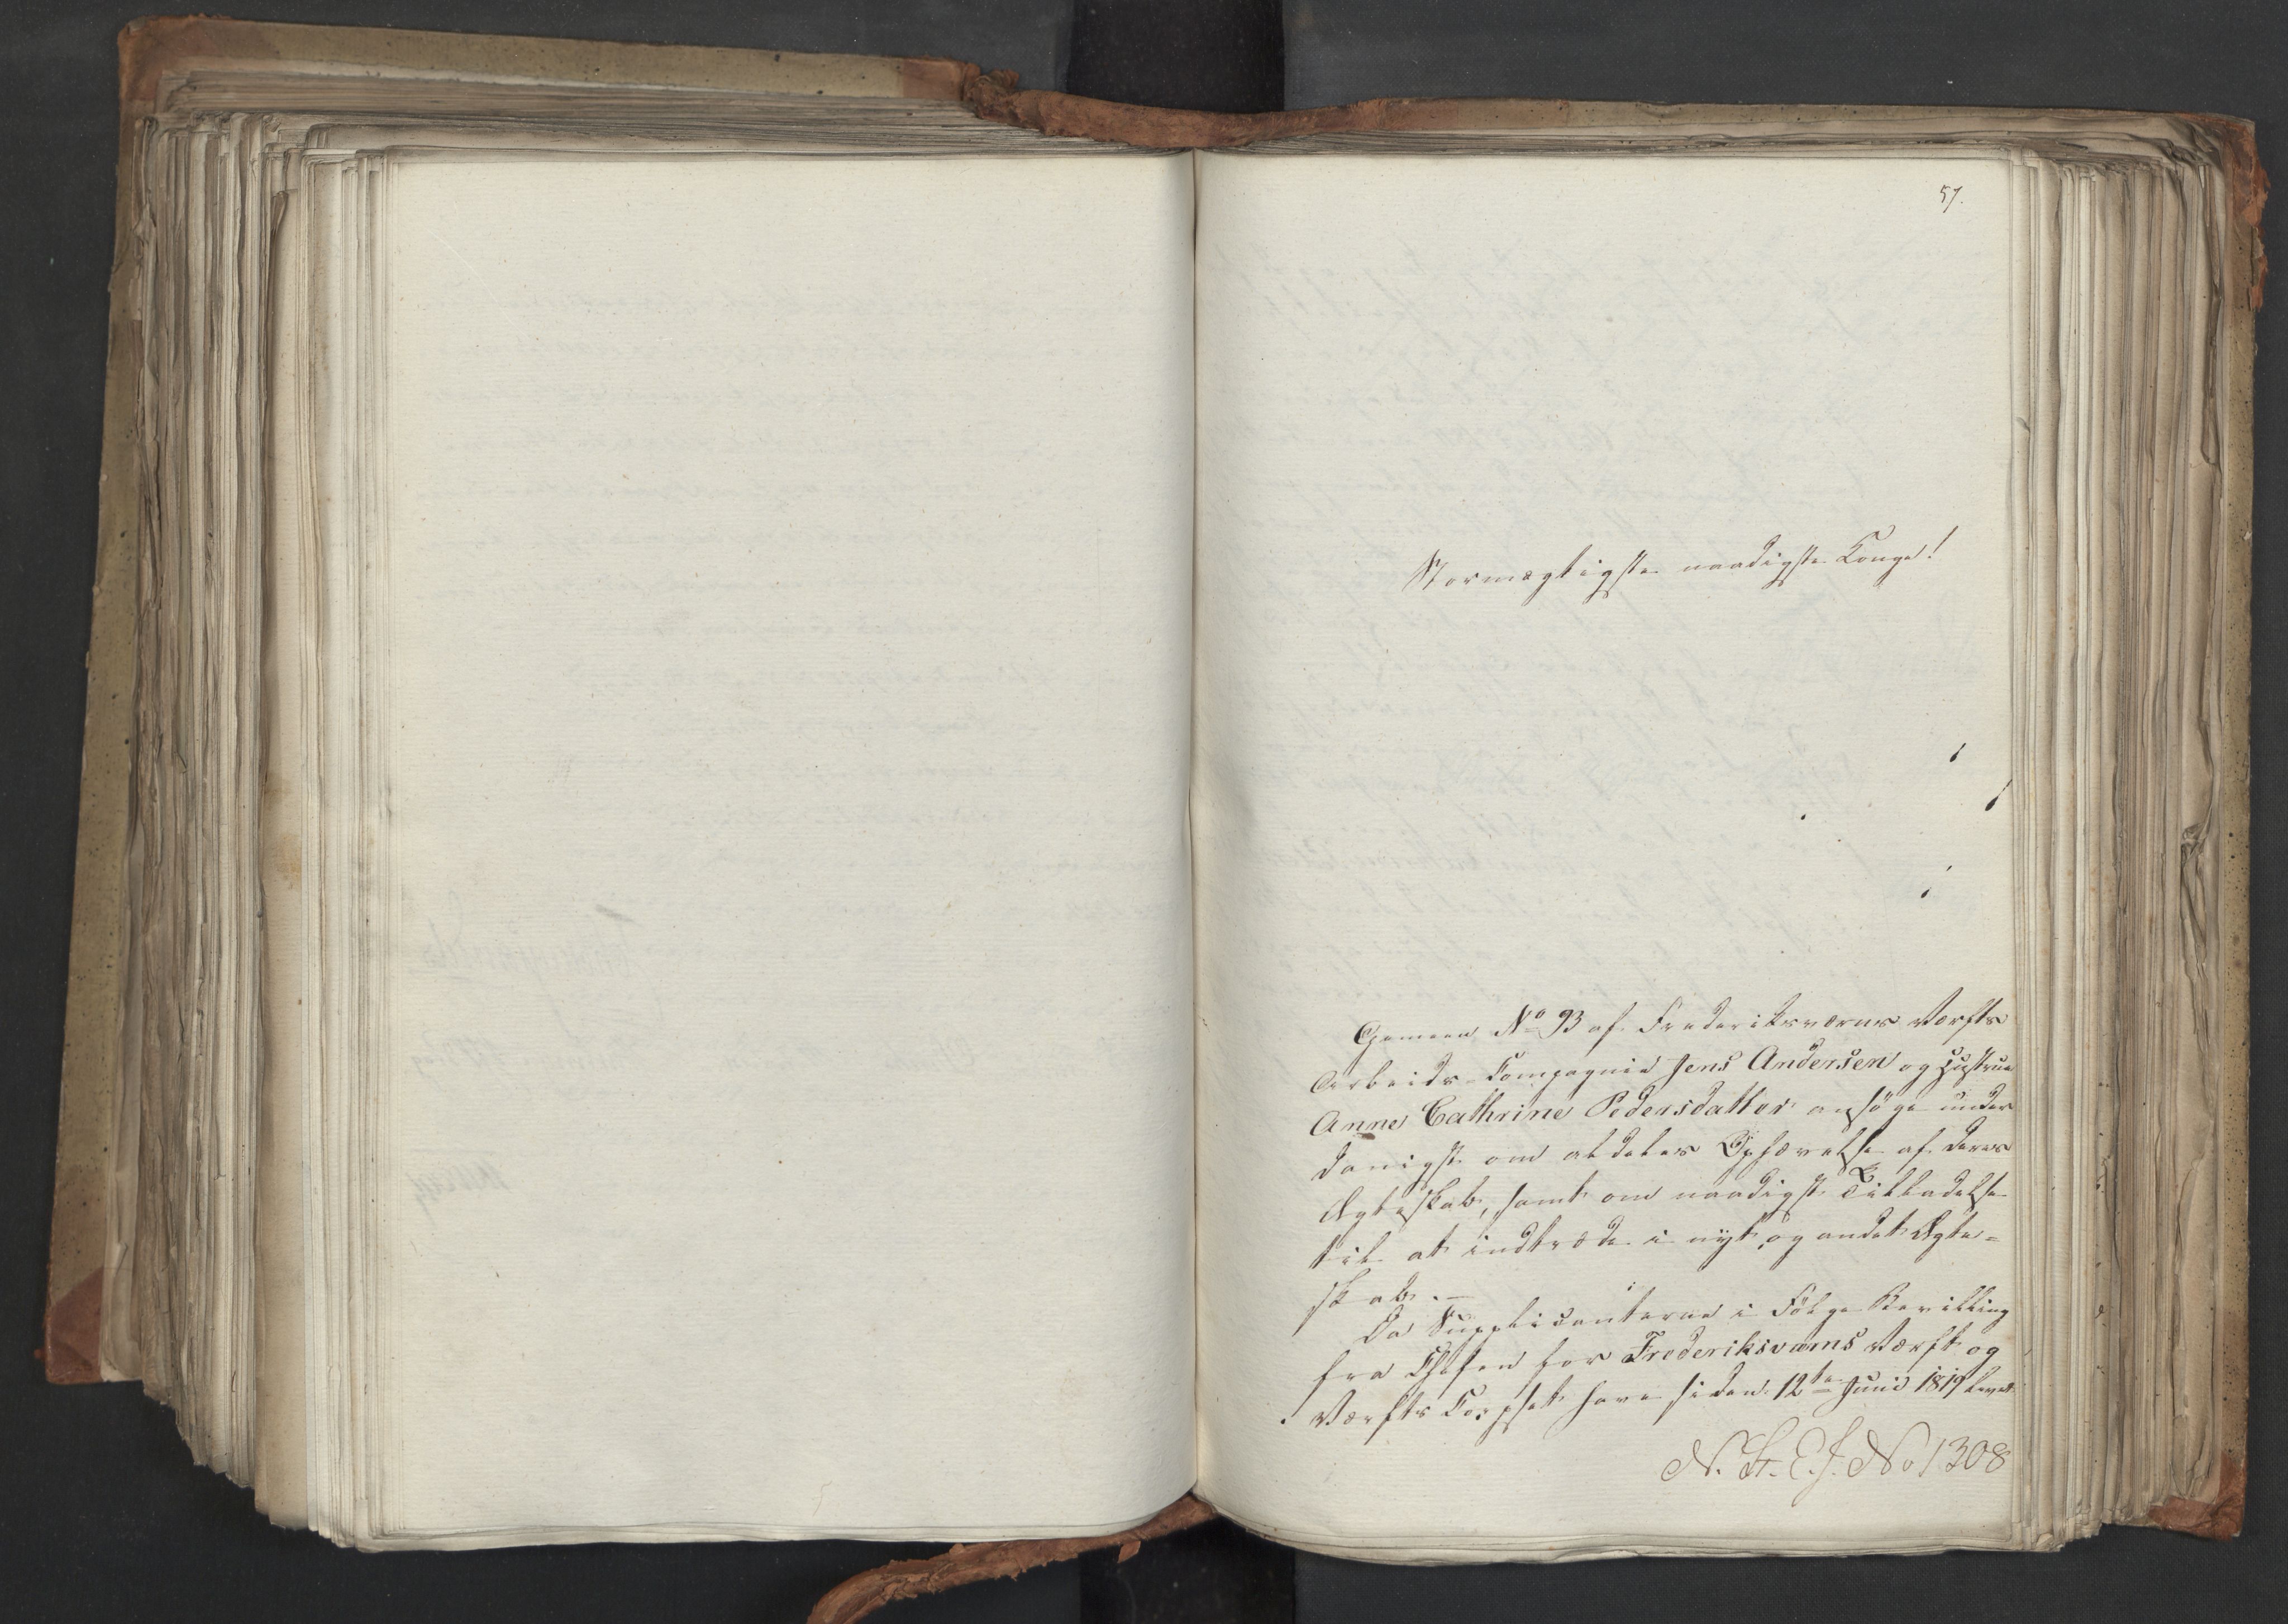 57.
Stormægtigste naadigste Konge!
Gemeen No 93 af Frederiksværns Værfts
Arbeids-Compagnie Jens Andersen og Hustrue
Anne Cathrine Pedersdatter ansøge under
danigst om at deres Ophævelse af deres
Ægteskab, samt om naadigst Tilladelse
til at indtræde i nyt og andet Ægte=
skab.-
Da Supplicanterne i Følge Bevilling
fra Chefen for Frederiksværns Værft og
Værfts Corpset have siden 12te Junii 1819 levet
N. St. C. J. No 1308